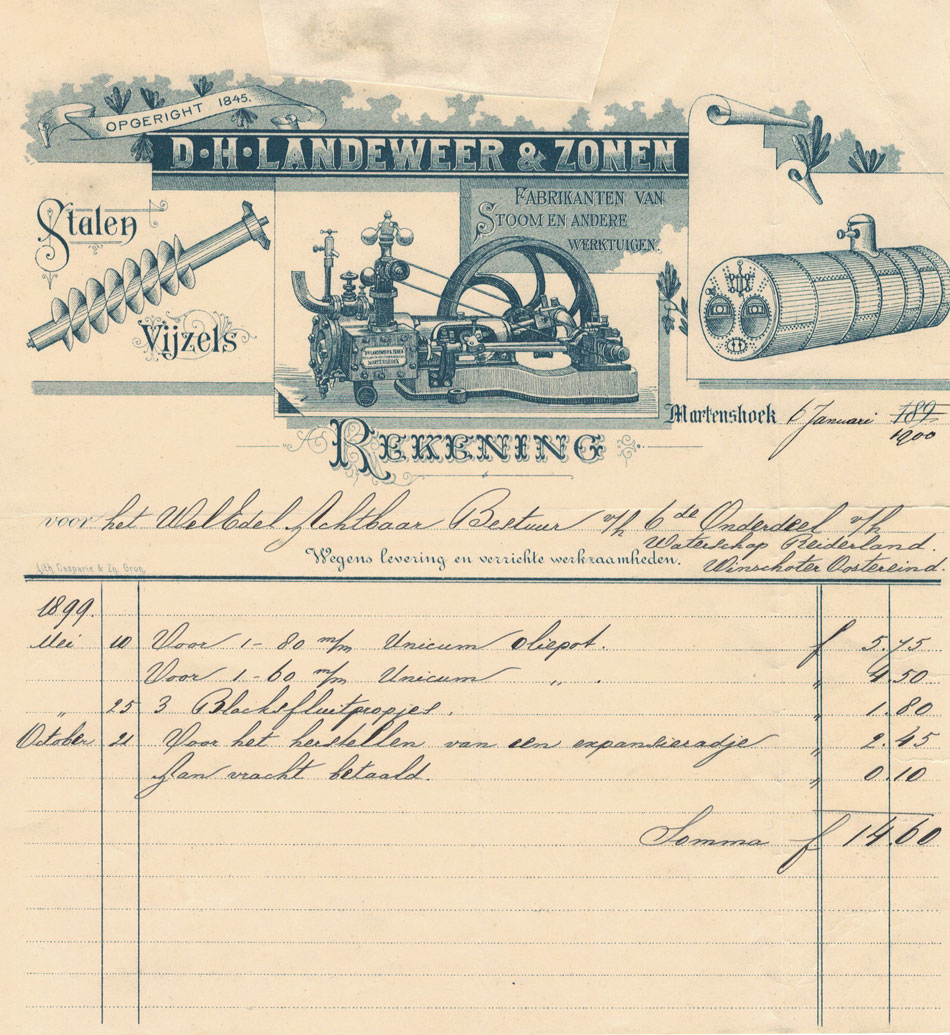 OPGERIGHT 1845.
D·H·LANDEWEER & ZONEN
FABRIKANTEN VAN
STOOM EN ANDERE
WERKTUIGEN.
Stalen
Vijzels
D·H·LANDEWEER & ZONEN
MARTENSHOEK
Martenshoek 6 Januari 189
1900
REKENING
voor het WelEdel Achtbaar Bestuur v/h 6de Onderdeel v/h
Waterschap Reiderland.
Wegens levering en verrichte werkzaamheden. Winschoter Oostereind.
Lith. Casparie & Zn. Gron.
1899.
Mei 10 Voor 1-80 m/m Unicum oliepot. f 5.75
Voor 1-60 m/m Unicum „ . „ 4.50
„ 25 3 Blacksfluitpropjes. „ 1.80
October 21 Voor het herstellen van een expansieradje „ 2.45
Aan vracht betaald. „ 0.10
Somma f 14.60